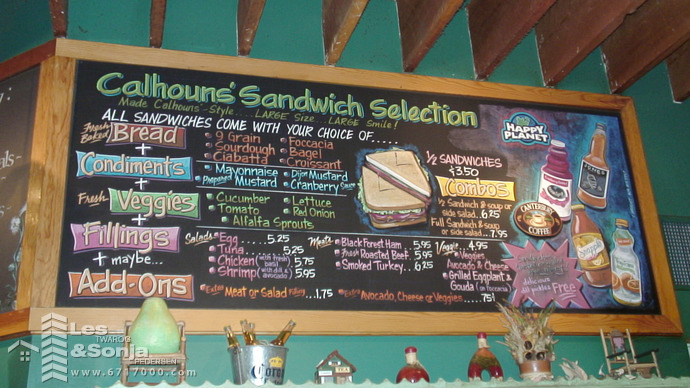 Calhouns' Sandwich Selection
Made Calhouns'-Style.....LARGE Size...LARGE Smile!
ALL SANDWICHES COME WITH YOUR CHOICE OF.....
Fresh Baked Bread
9 Grain
Foccacia
Sourdough
Bagel
Ciabatta
Croissant
+
Condiments
Mayonnaise
Dijon Mustard
Prepared Mustard
Cranberry Sauce
+
Fresh Veggies
Cucumber
Lettuce
Tomato
Red Onion
Alfalfa Sprouts
+
Fillings
Salads
Egg.....5.25
Tuna 5.25
Chicken (with fresh basil) 5.75
Shrimp (with dill & avocado) 5.95
Meats
Black Forest Ham 5.95
Fresh Roasted Beef. 5.95
Smoked Turkey.. 6.25
Veggie. 4.95
Veggies Avocado & Cheese
Grilled Eggplant & Gouda (on Foccacia)
+ maybe...
Add-Ons
Extra Meat or Salad Filling...1.75
Extra Avocado, Cheese or Veggies.....75¢!
1/2 SANDWICHES
$3.50
Combos
1/2 Sandwich & soup or
side salad.. 6.25
Full Sandwich & soup
or side salad... 7.95
HAPPY PLANET
CANTERBURY
COFFEE
JONES
Snapple
Free
Corona
Les
TWAROG
&Sonja
PEDERSEN
www.6717000.com